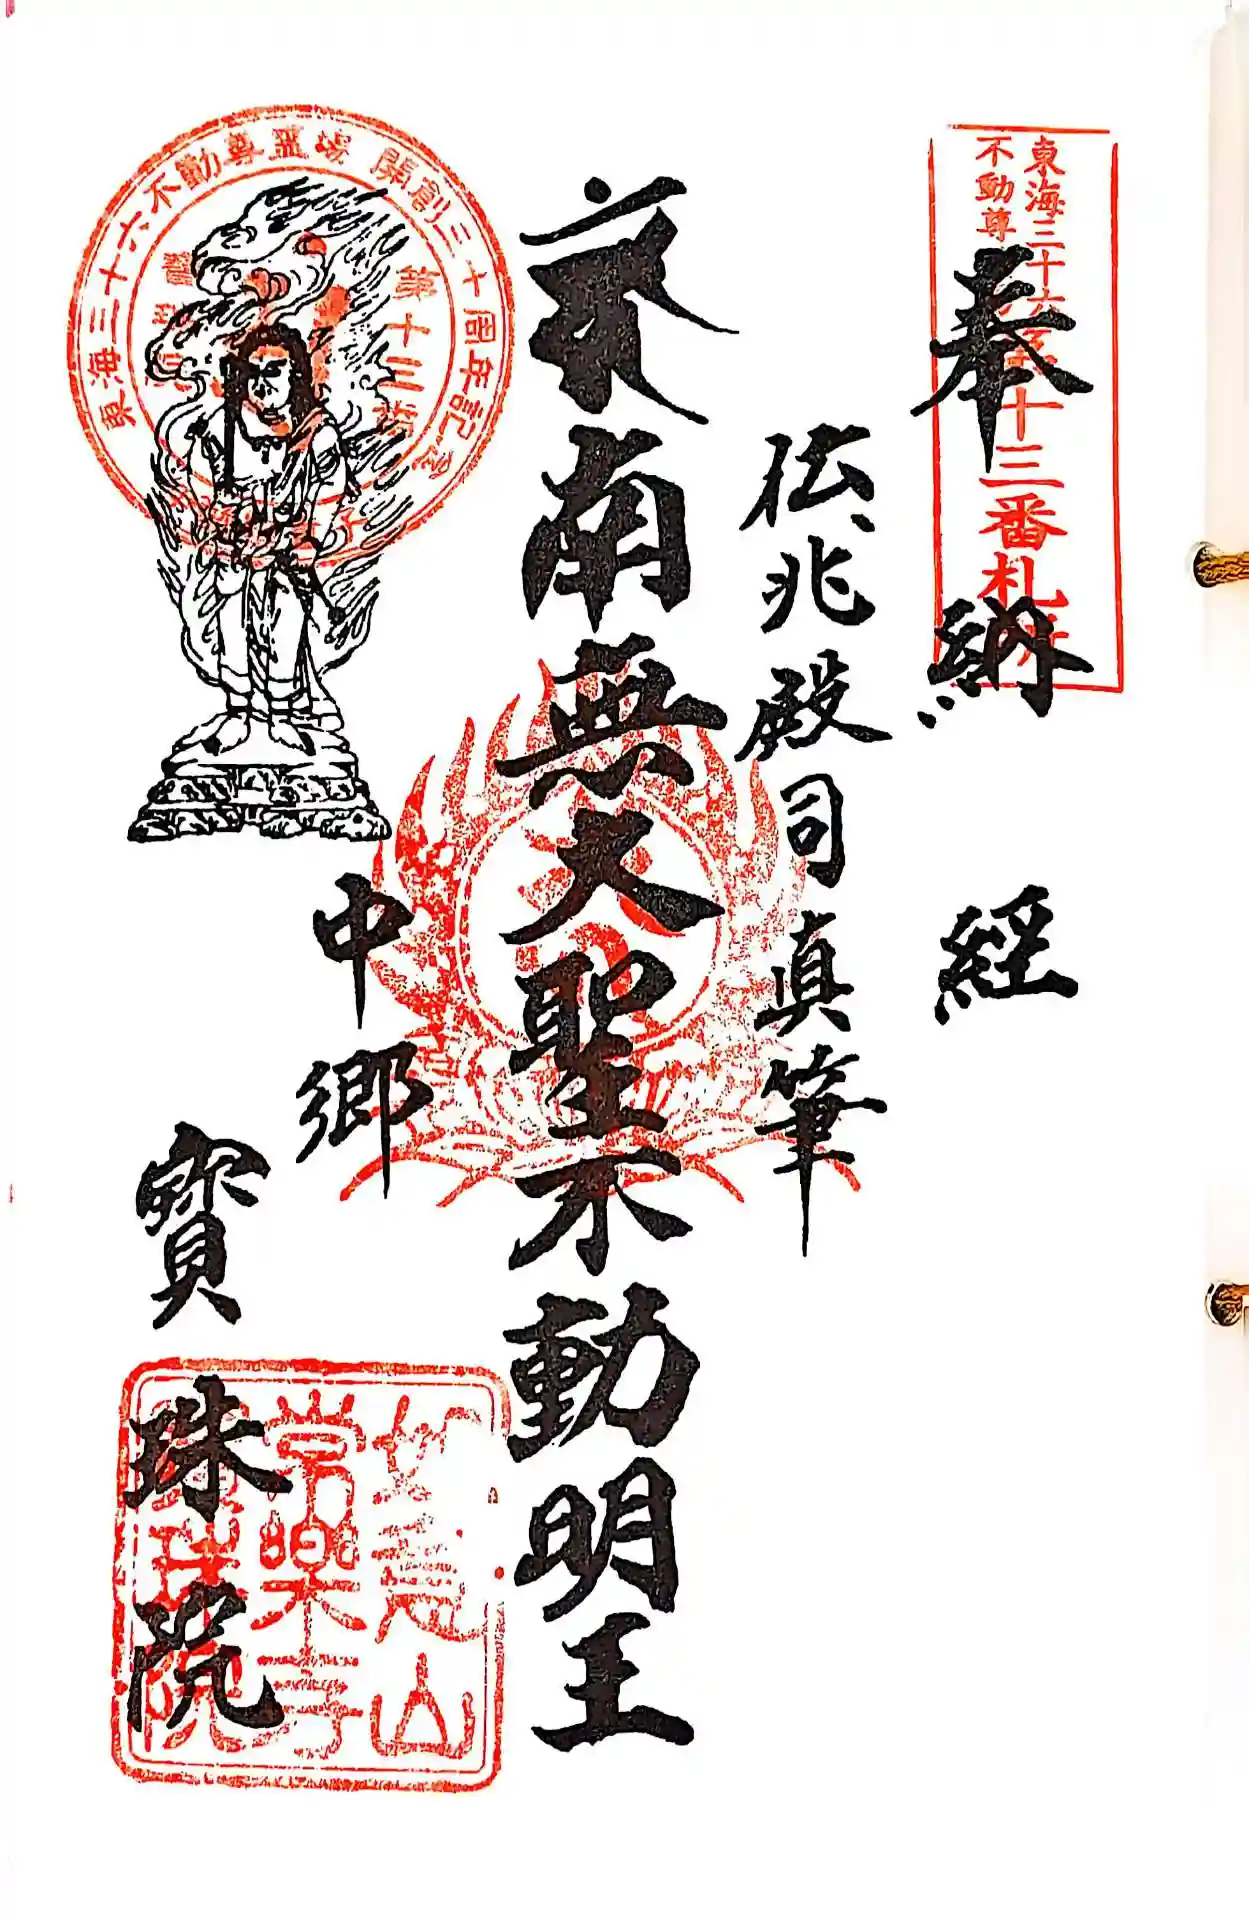 奉納経
東海三十六
不動尊
十三番札所
伝兆殿司真筆
南無大聖不動明王
中郷
寳珠院
東海三十六不動尊霊場 開創三十周年記念
第十三番
山
常樂寺
院